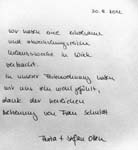 30.8.2012
wir haben eine erholsame
und abwechslungsreiche
Urlaubswoche in Wick
verbracht.
In unserer Ferienwohnung haben
wir uns sehr wohl gefühlt,
dank der herzlichen
Betreuung von Frau Schmidt
+ Stefan